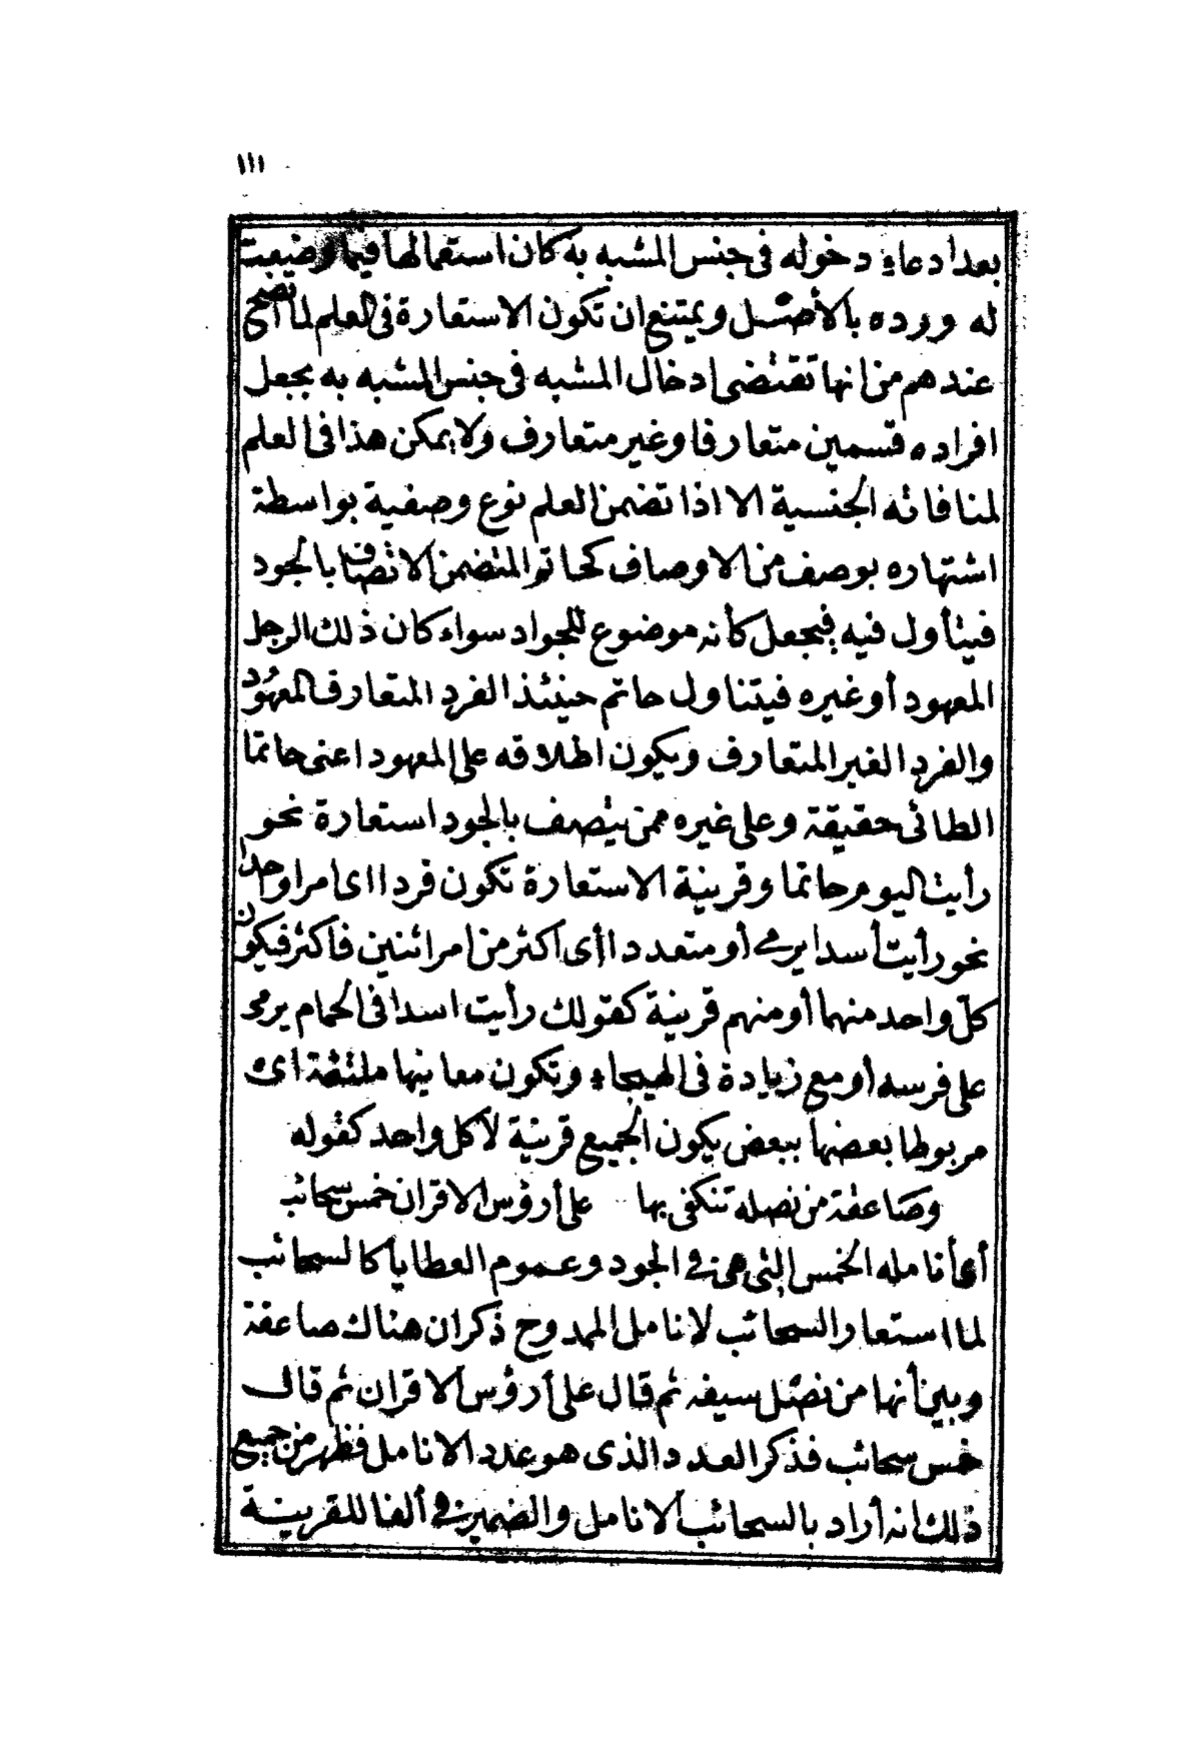 ١١١
بعد ادعاء دخوله فى جنس المشبه به كان استعمالها فيما وضعت
له ورده بالأصل ويمتنع ان تكون الاستعارة فى العلم لما تضح
عندهم من انها تقتضى ادخال المشبه فى جنس المشبه به بجعل
افراده قسمين متعارفا وغير متعارف ولا يمكن هذا فى العلم
لمنافاته الجنسية الا اذا تضمن العلم نوع وصفية بواسطة
اشتهاره بوصف من الاوصاف كحاتم المتضمن الاتصاف بالجود
فيتأول فيه فيجعل كأنه موضوع للجواد سواء كان ذلك الرجل
المعهود أو غيره فيتناول حاتم حينئذ الفرد المتعارف المعهود
والفرد الغير المتعارف ويكون اطلاقه على المعهود اعنى حاتما
الطائى حقيقة وعلى غيره ممن يتصف بالجود استعارة نحو
رأيت اليوم حاتما وقرينة الاستعارة تكون فردا اى امرا واحدا
نحو رأيت أسدا يرمى أو متعددا أى اكثر من امر اثنين فاكثر فيكون
كل واحد منهما أو منهم قرينة كقولك رأيت اسدا فى الحمام يرمى
على فرسه او مع زيادة فى الهيجاء وتكون معانيها ملتئمة اى
مربوطا بعضها ببعض يكون الجميع قرينة لا كل واحد كقوله
وصاعقة من نصله تنكفى بها على أرؤس الاقران خمس سحائب
أى أنامله الخمس التى هى فى الجود وعموم العطايا كالسحائب
لما استعار السحائب لانامل الممدوح ذكر ان هناك صاعقة
وبين أنها من نصل سيفه ثم قال على أرؤس الاقران ثم قال
خمس سحائب فذكر العدد الذى هو عدد الانامل فظهر من جميع
ذلك انه أراد بالسحائب الانامل والضمير فى ألفا للقرينة